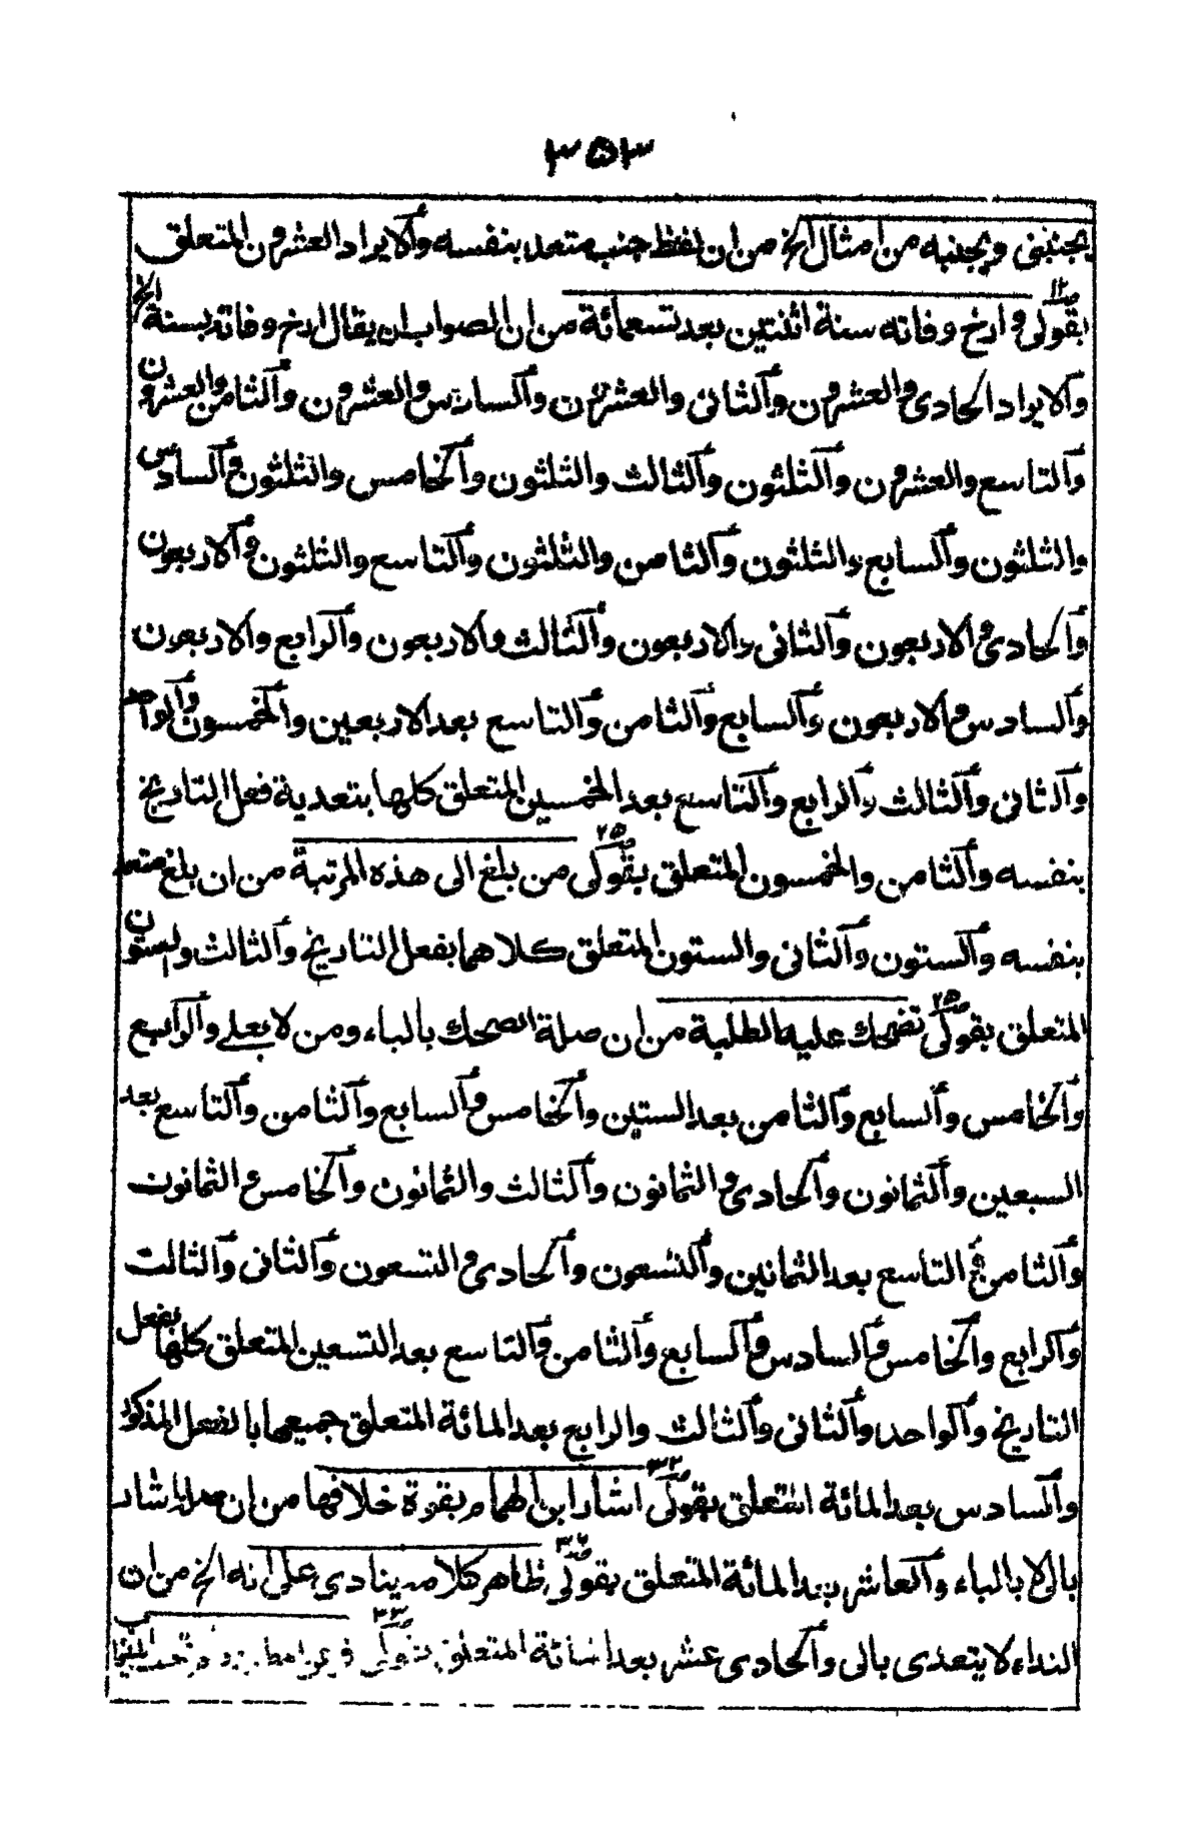 ٣٥٣
يجنبنى ويجنبه من امثال الخ من ان لفظ جنب متعد بنفسه والايراد العشرون المتعلق
بقولى ص١٢ وارخ وفاته سنة اثنتين بعد تسعمائة من ان الصواب ان يقال ارخ وفاته بسنة الخ
والايراد الحادى والعشرون والثانى والعشرون والسادس والعشرون والثامن والعشرون
والتاسع والعشرون والثلثون والثالث والثلثون والخامس والثلثون والسادس
والثلثون والسابع والثلثون والثامن والثلثون والتاسع والثلثون والاربعون
والحادى والاربعون والثانى والاربعون والثالث والاربعون والرابع والاربعون
والسادس والاربعون والسابع والثامن والتاسع بعد الاربعين والخمسون والواحد
والثانى والثالث والرابع والتاسع بعد الخمسين المتعلق كلها بتعدية فعل التاريخ
بنفسه والثامن والخمسون المتعلق بقولى ص٢٥ من بلغ الى هذه المرتبة من ان بلغ متعد
بنفسه والستون والثانى والستون المتعلق كلاهما بفعل التاريخ والثالث والستون
المتعلق بقولى ص٢٥ تضحك عليه الطلبة من ان صلة الضحك بالباء ومن لا بعلى والرابع
والخامس والسابع والثامن بعد الستين والخامس والسابع والثامن والتاسع بعد
السبعين والثمانون والحادى والثمانون والثالث والثمانون والخامس والثمانون
والثامن والتاسع بعد الثمانين والتسعون والحادى والتسعون والثانى والثالث
والرابع والخامس والسادس والسابع والثامن والتاسع بعد التسعين المتعلق كلها بفعل
التاريخ والواحد والثانى والثالث والرابع بعد المائة المتعلق جميعها بالفعل المذكور
والسادس بعد المائة المتعلق بقولى ص٣٢ اشار ابن الهمام بقوة خلافها من ان صلة اشار
بالى لا بالباء والعاشر بعد المائة المتعلق بقولى ظاهر كلامه ينادى على انه الخ من ان
النداء لا يتعدى بالى والحادى عشر بعد المائة المتعلق بقولى ص٣٣